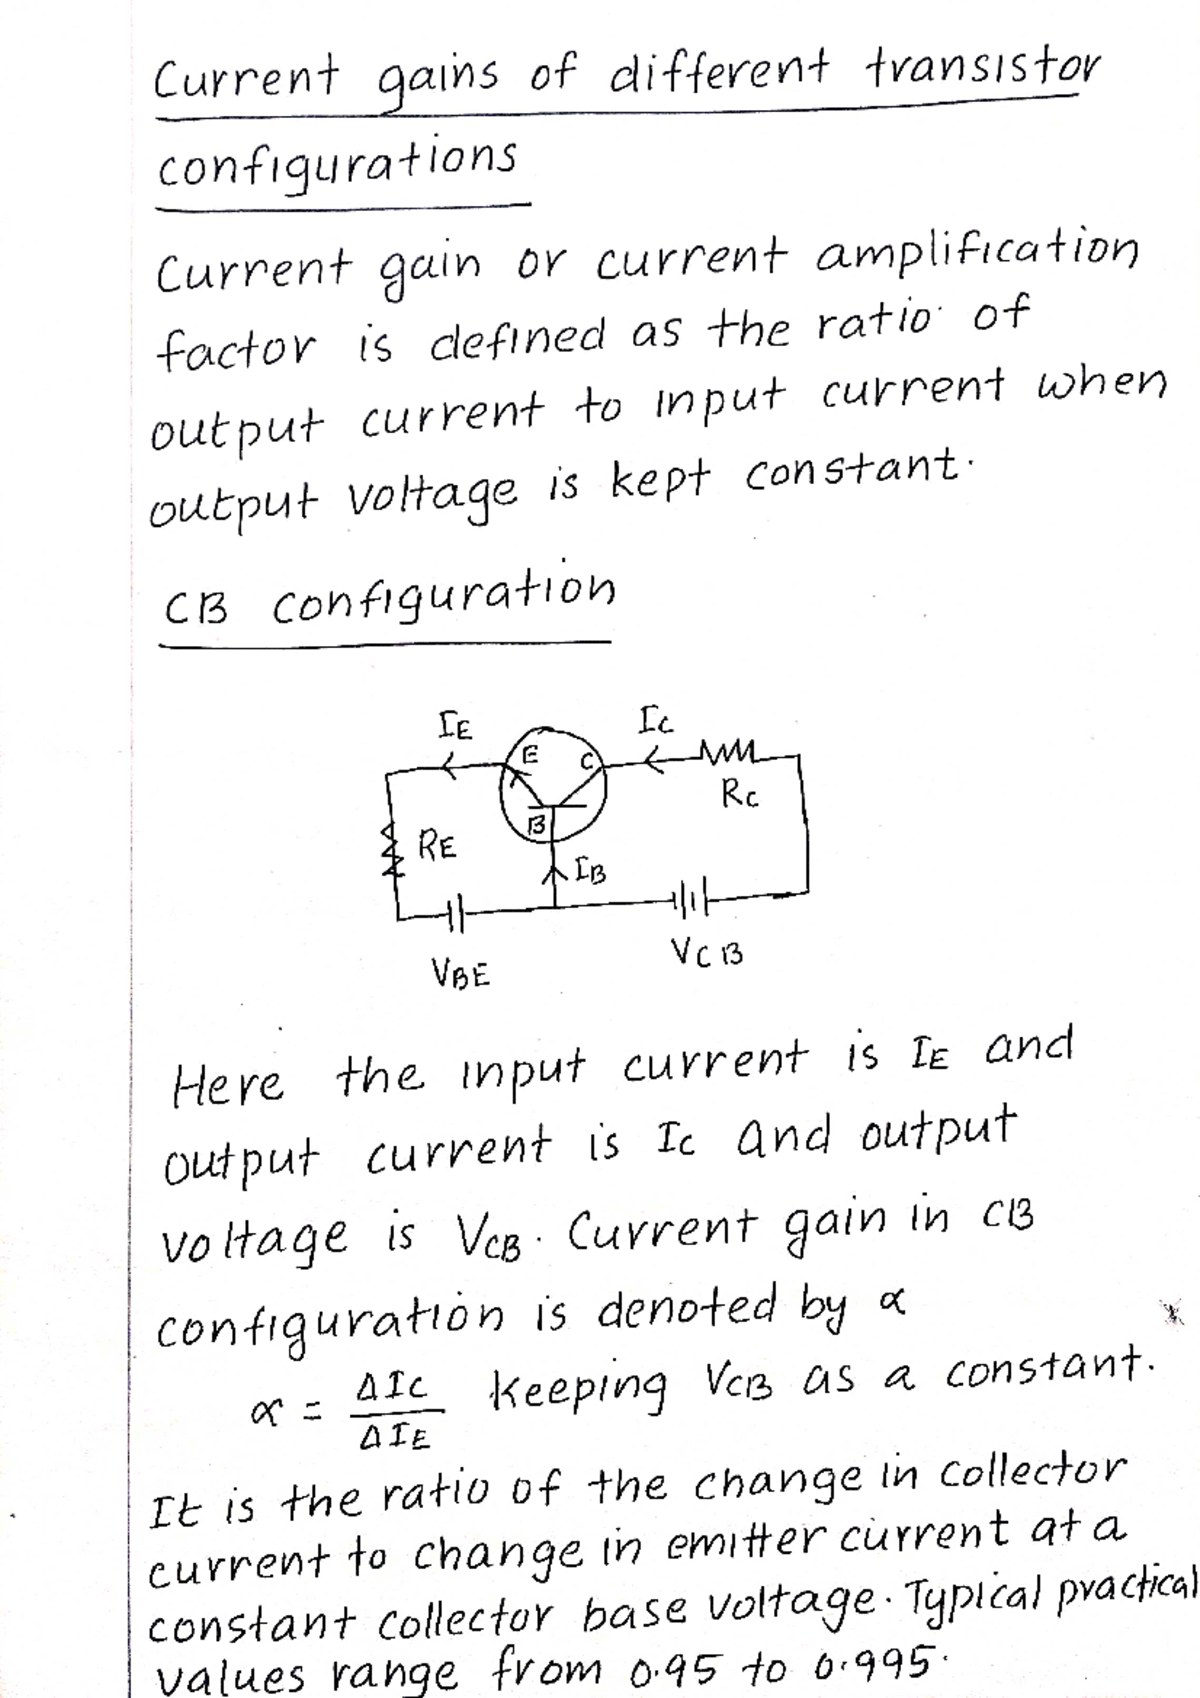 Current gains of different transistor
configurations
Current gain or current amplification
factor is defined as the ratio of
output current to input current when
output voltage is kept constant.
CB configuration
IE
IC
E
C
RC
RE
B
IB
VCB
VBE
Here the input current is IE and
output current is IC and output
voltage is VCB. Current gain in CB
configuration is denoted by α
α = ΔIC / ΔIE keeping VCB as a constant.
It is the ratio of the change in collector
current to change in emitter current at a
constant collector base voltage. Typical practical
values range from 0.95 to 0.995.